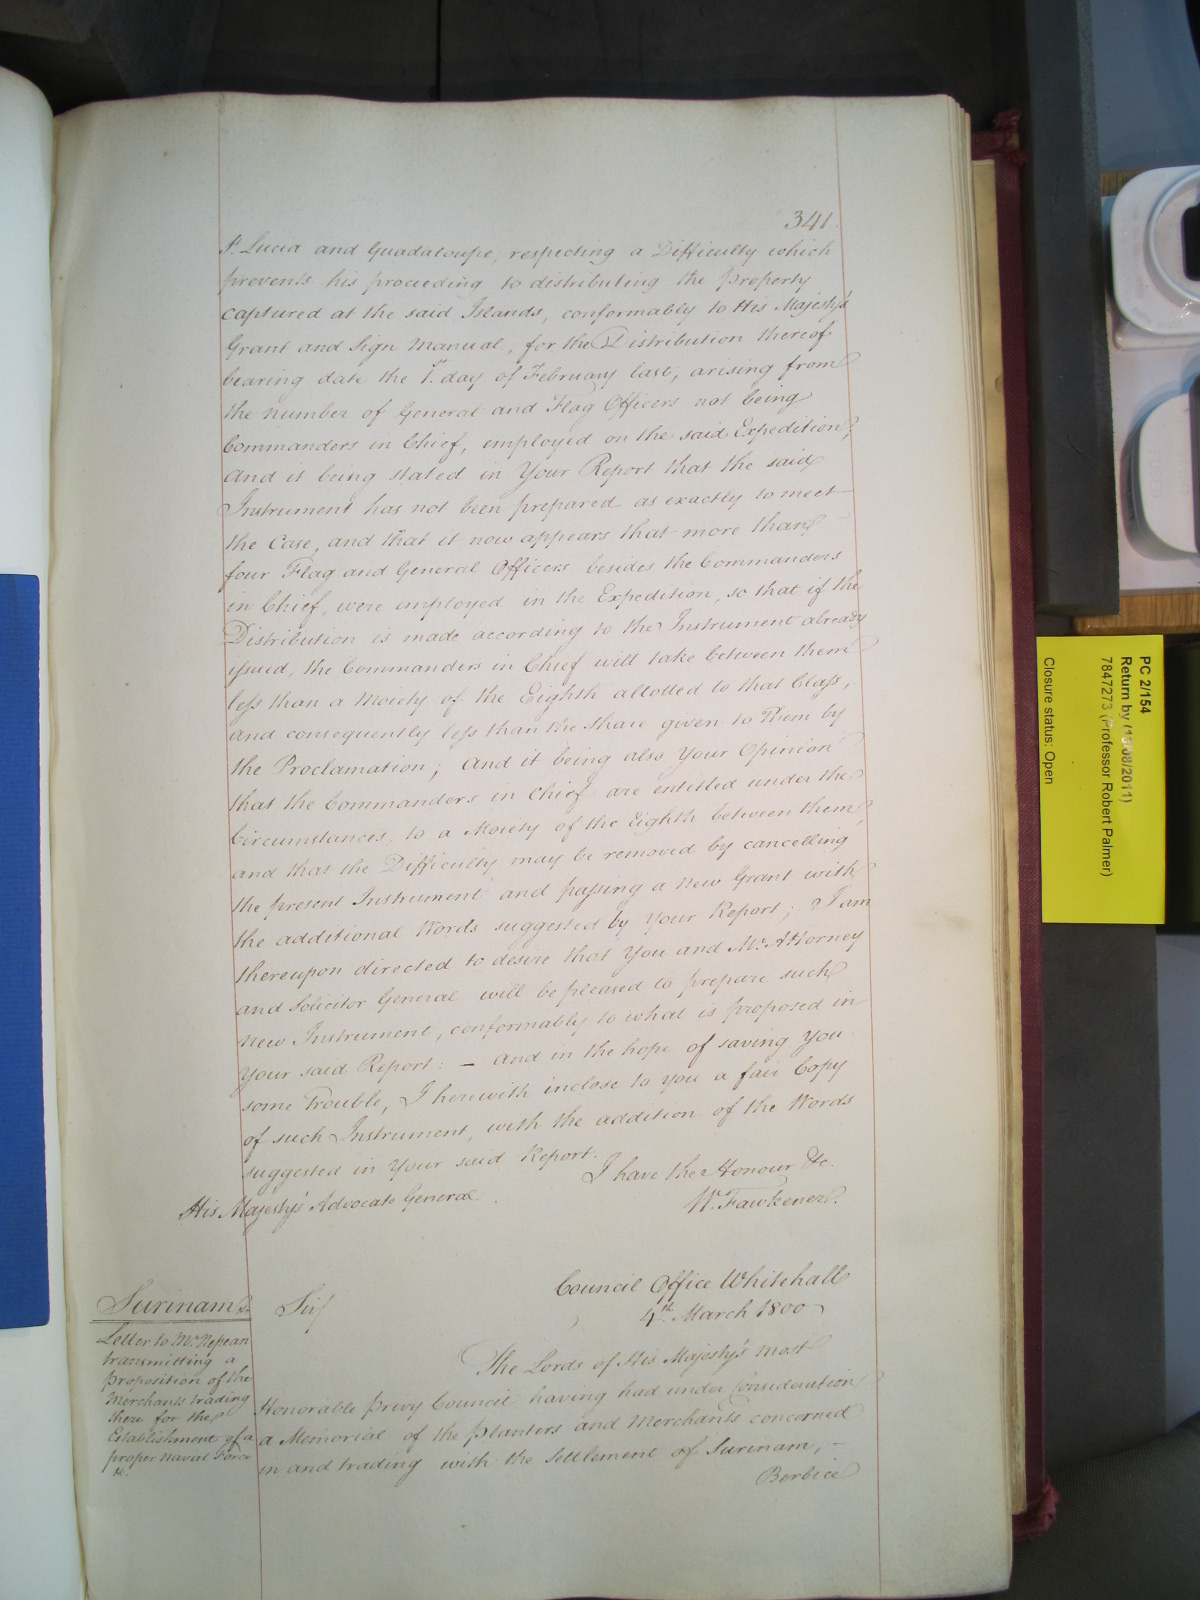 341
St. Lucia and Guadaloupe, respecting a Difficulty which
prevents his proceeding to distributing the Property
captured at the said Islands, conformably to His Majesty's
Grant and Sign Manual, for the Distribution thereof
bearing date the 1st. day of February last, arising from
the number of General and Flag Officers not being
Commanders in Chief, employed on the said Expedition;
And it being stated in Your Report that the said
Instrument has not been prepared as exactly to meet
the Case, and that it now appears that more than
four Flag and General Officers besides the Commanders
in Chief, were employed in the Expedition, so that if the
Distribution is made according to the Instrument already
issued, the Commanders in Chief will take between them
less than a Moiety of the Eighth allotted to that Class,
and consequently less than the share given to Them by
the Proclamation; And it being also Your Opinion
that the Commanders in Chief are entitled under the
Circumstances to a Moiety of the Eighth between them,
and that the Difficulty may be removed by cancelling
the present Instrument and passing a New Grant with
the additional Words suggested by Your Report; I am
thereupon directed to desire that You and Mr. Attorney
and Solicitor General will be pleased to prepare such
new Instrument, conformably to what is proposed in
Your said Report: – And in the hope of saving You
some Trouble, I herewith inclose to you a fair Copy
of such Instrument, with the addition of the Words
suggested in Your said Report.
I have the Honour &c.
His Majesty's Advocate General
W. Fawkener.
Council Office Whitehall
4th. March 1800
Surinam &c.
Letter to Mr. Nepean
transmitting a
proposition of the
Merchants trading
there for the
Establishment of a
proper Naval Force
&c.
Sir/
The Lords of His Majesty's most
Honorable Privy Council having had under Consideration
a Memorial of the Planters and Merchants concerned
in and trading with the Settlement of Surinam, –
Berbice
PC 2/154
Return by (15/08/2011)
7847273 (Professor Robert Palmer)
Closure status: Open